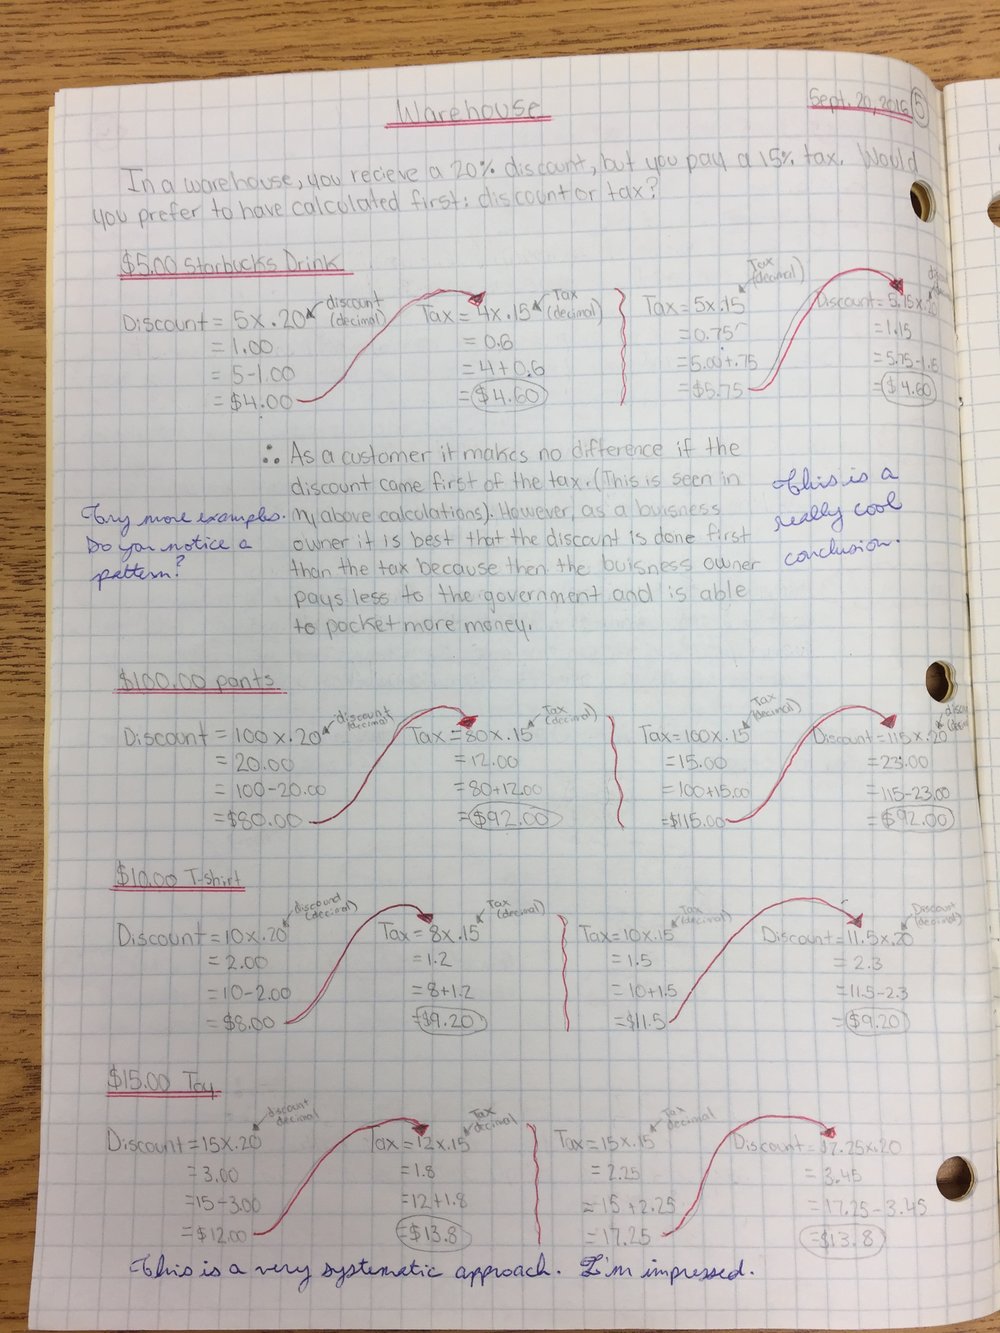 Warehouse
Sept. 20, 2016 5
In a warehouse, you recieve a 20% discount, but you pay a 15% tax. Would
you prefer to have calculated first: discount or tax?
$5.00 Starbucks Drink
discount
(decimal)
Discount = 5x.20
= 1.00
= 5-1.00
= $4.00
Tax
(decimal)
Tax = 4x.15
= 0.6
= 4+0.6
= $4.60
Tax
(decimal)
Tax = 5x.15
= 0.75
= 5.00+.75
= $5.75
Discount = 5.75x.20
= 1.15
= 5.75-1.15
= $4.60
∴ As a customer it makes no difference if the
discount came first of the tax. (This is seen in
my above calculations). However, as a buisness
owner it is best that the discount is done first
than the tax because then the buisness owner
pays less to the government and is able
to pocket more money.
Try more examples.
Do you notice a
pattern?
This is a
really cool
conclusion.
$100.00 pants
discount
(decimal)
Discount = 100x.20
= 20.00
= 100-20.00
= $80.00
Tax
(decimal)
Tax = 80x.15
= 12.00
= 80+12.00
= $92.00
Tax
(decimal)
Tax = 100x.15
= 15.00
= 100+15.00
= $115.00
Discount = 115x.20
= 23.00
= 115-23.00
= $92.00
$10.00 T-shirt
discound
(decimal)
Discount = 10x.20
= 2.00
= 10-2.00
= $8.00
Tax
(decimal)
Tax = 8x.15
= 1.2
= 8+1.2
= $9.20
Tax
(decimal)
Tax = 10x.15
= 1.5
= 10+1.5
= $11.5
Discount
(decimal)
Discount = 11.5x.20
= 2.3
= 11.5-2.3
= $9.20
$15.00 Toy
discount
decimal
Discount = 15x.20
= 3.00
= 15-3.00
= $12.00
Tax
decimal
Tax = 12x.15
= 1.8
= 12+1.8
= $13.8
Tax
decimal
Tax = 15x.15
= 2.25
= 15+2.25
= 17.25
Discount = 17.25x.20
= 3.45
= 17.25-3.45
= $13.8
This is a very systematic approach. I'm impressed.